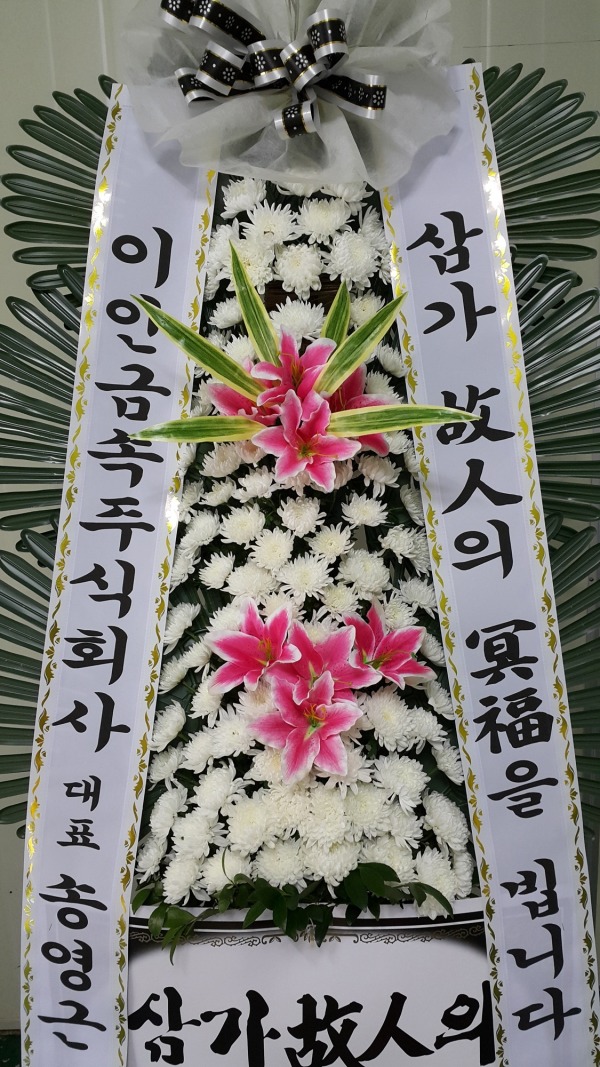 삼가 故人의 冥福을 빕니다
이인금속주식회사 대표 송영근
삼가故人의